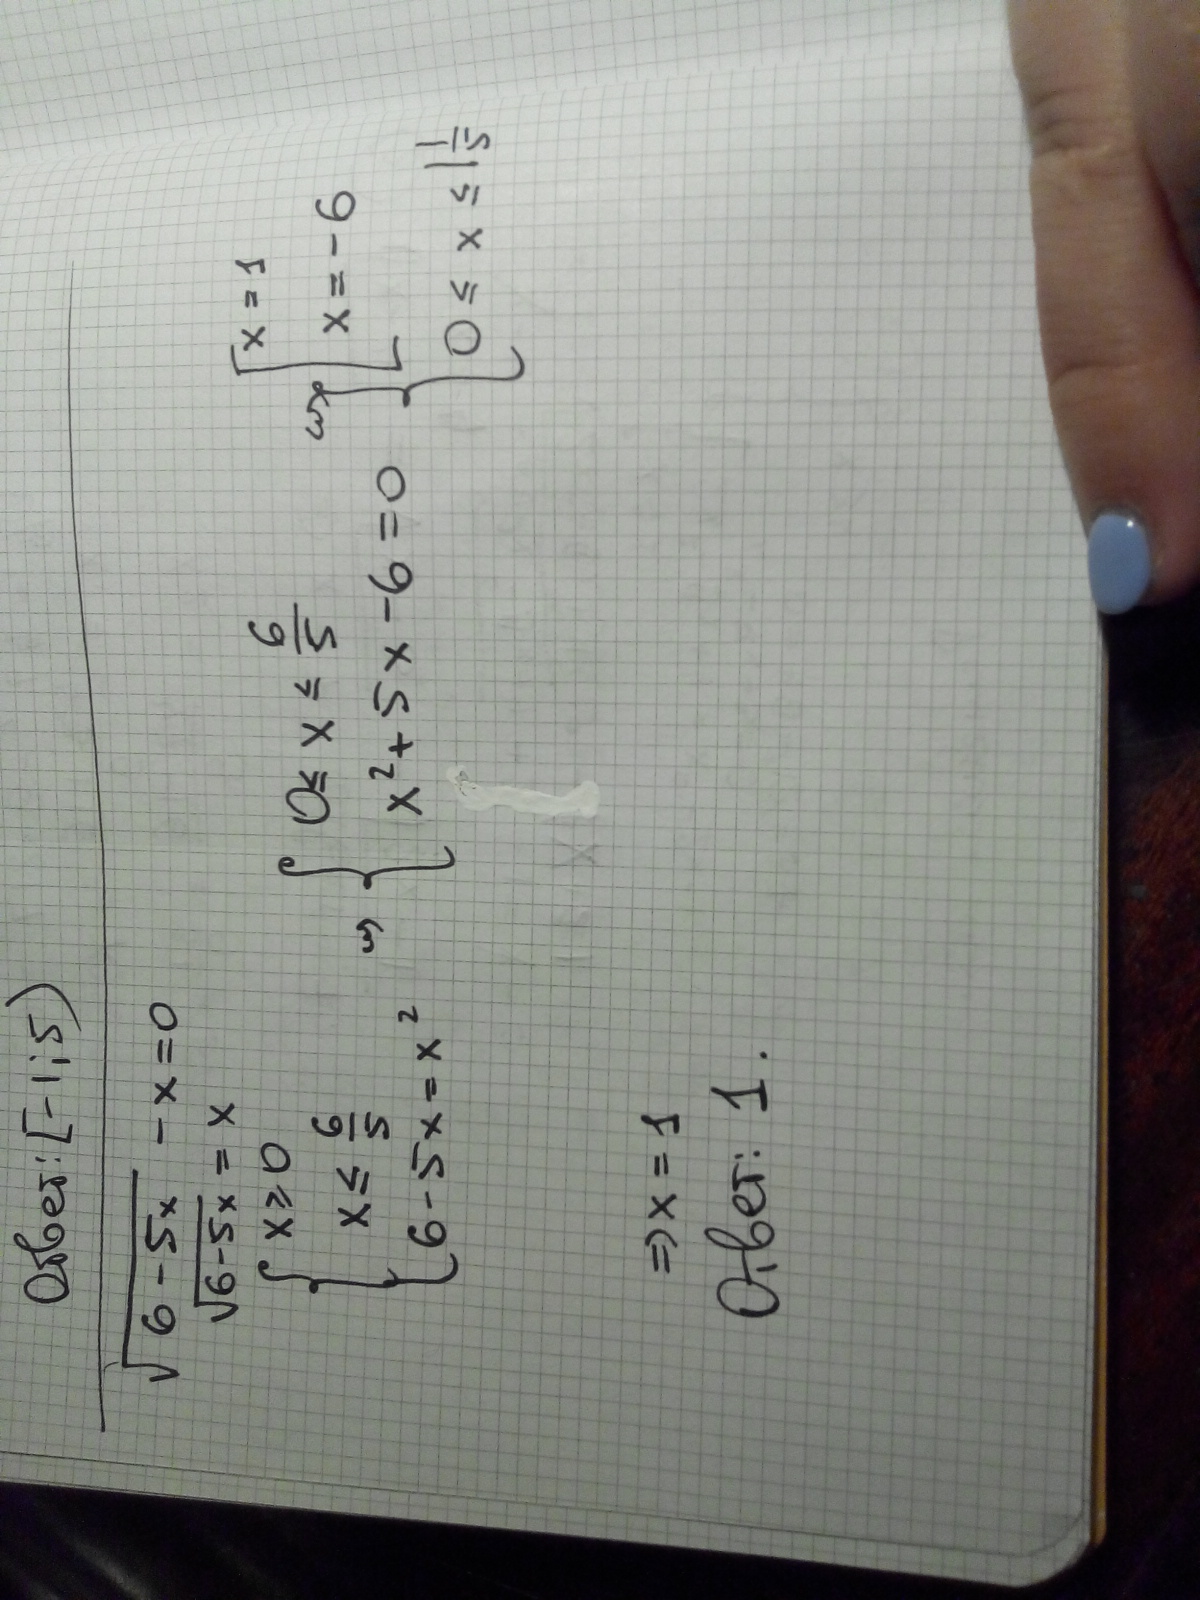 Ответ: [-1;5)
√(6-5x) -x=0
√(6-5x) = x
{ x≥0
x≤ 6/5
6-5x=x²
⇔ { 0≤ x ≤ 6/5
x²+5x-6=0
⇔ { [ x=1
x=-6
0 ≤ x ≤ 1 1/5
⇒ x=1
Ответ: 1.